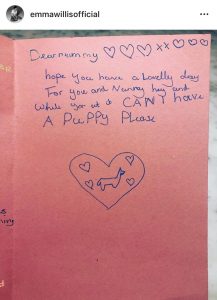 emmawillisofficial
Dear mummy ♡♡♡xx♡♡♡
hope you have a Lovelly day
For you and Nanny hay and
While yor at it CAN I have
A PuPPy Please